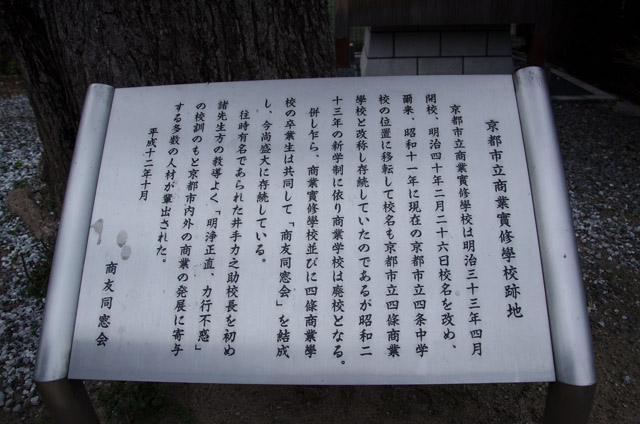 京都市立商業實修學校跡地
京都市立商業實修學校は明治三十三年四月
開校、明治四十年二月二十六日校名を改め、
爾来、昭和十一年に現在の京都市立四条中学
校の位置に移転して校名も京都市立四條商業
學校と改称し存続していたのであるが昭和二
十三年の新学制に依り商業学校は廃校となる。
併し乍ら、商業實修學校並びに四條商業學
校の卒業生は共同して、「商友同窓会」を結成
し、今尚盛大に存続している。
往時有名であられた井手力之助校長を初め
諸先生方の教導よく「明浄正直、力行不惑」
の校訓のもと京都市内外の商業の発展に寄与
する多数の人材が輩出された。
平成十二年十月
商友同窓会